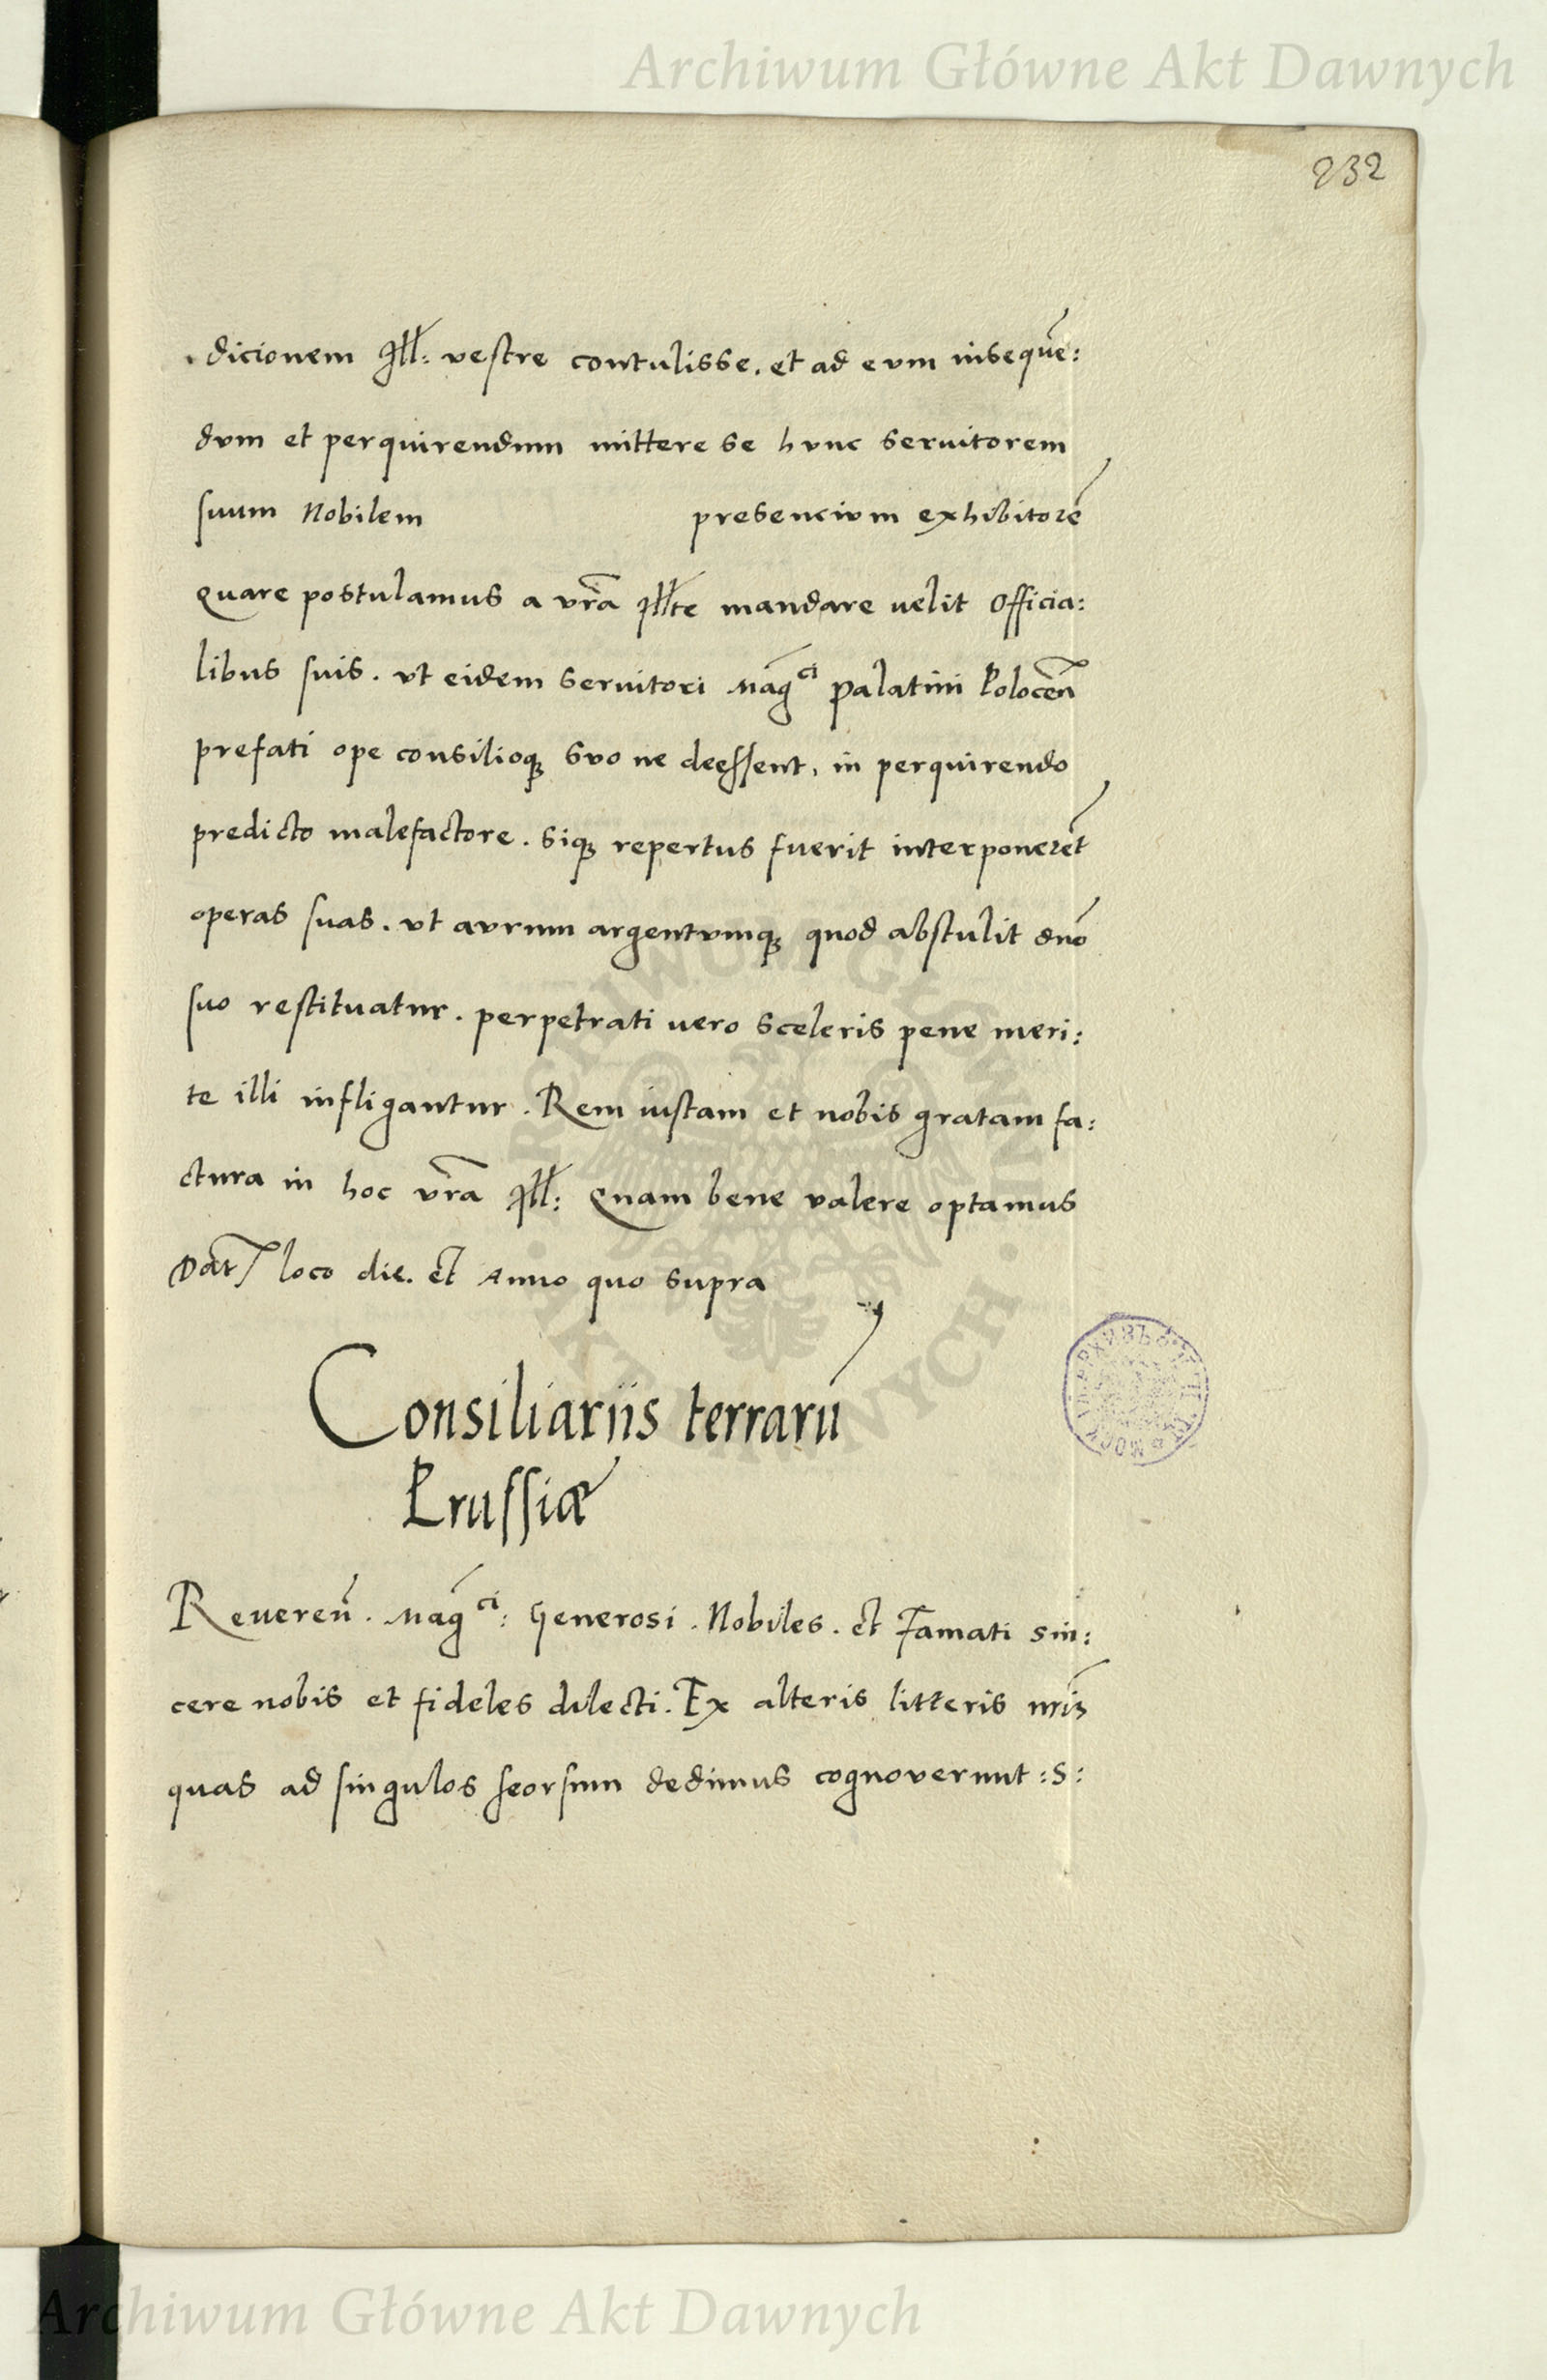 Archiwum Główne Akt Dawnych
232
dicionem Jll: vestre contulisse. et ad eum insequē:
dum et perquirendum mittere se hunc servitorem
suum Nobilem presencium exhibitorē
Quare postulamus a vr̄a Jllte mandare uelit Officia:
libus suis. vt eidem servitori Mag̃ci Palatini Polocen̄
prefati ope consilioq; suo ne deessent, in perquirendo
predicto malefactore. siq; repertus fuerit interponerēt
operas suas. vt aurum argentumq; quod abstulit dn̄o
suo restituatur. perpetrati uero sceleris pene meri:
te illi infligantur. Rem iustam et nobis gratam fa:
ctura in hoc vr̄a Jll: Quam bene valere optamus
Dat̄ loco die. et Anno quo supra
Consiliariis terrarū
Prussiæ
Reueren̄. Mag̃ci: Generosi. Nobiles. et Famati sin:
cere nobis et fideles dilecti. Ex alteris litteris nr̄is
quas ad singulos seorsum dedimus cognoverunt :S:
Archiwum Główne Akt Dawnych